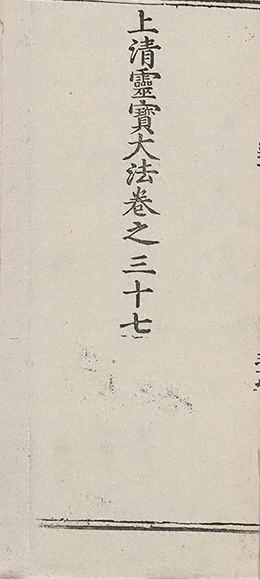 上清靈寳大法卷之三十七